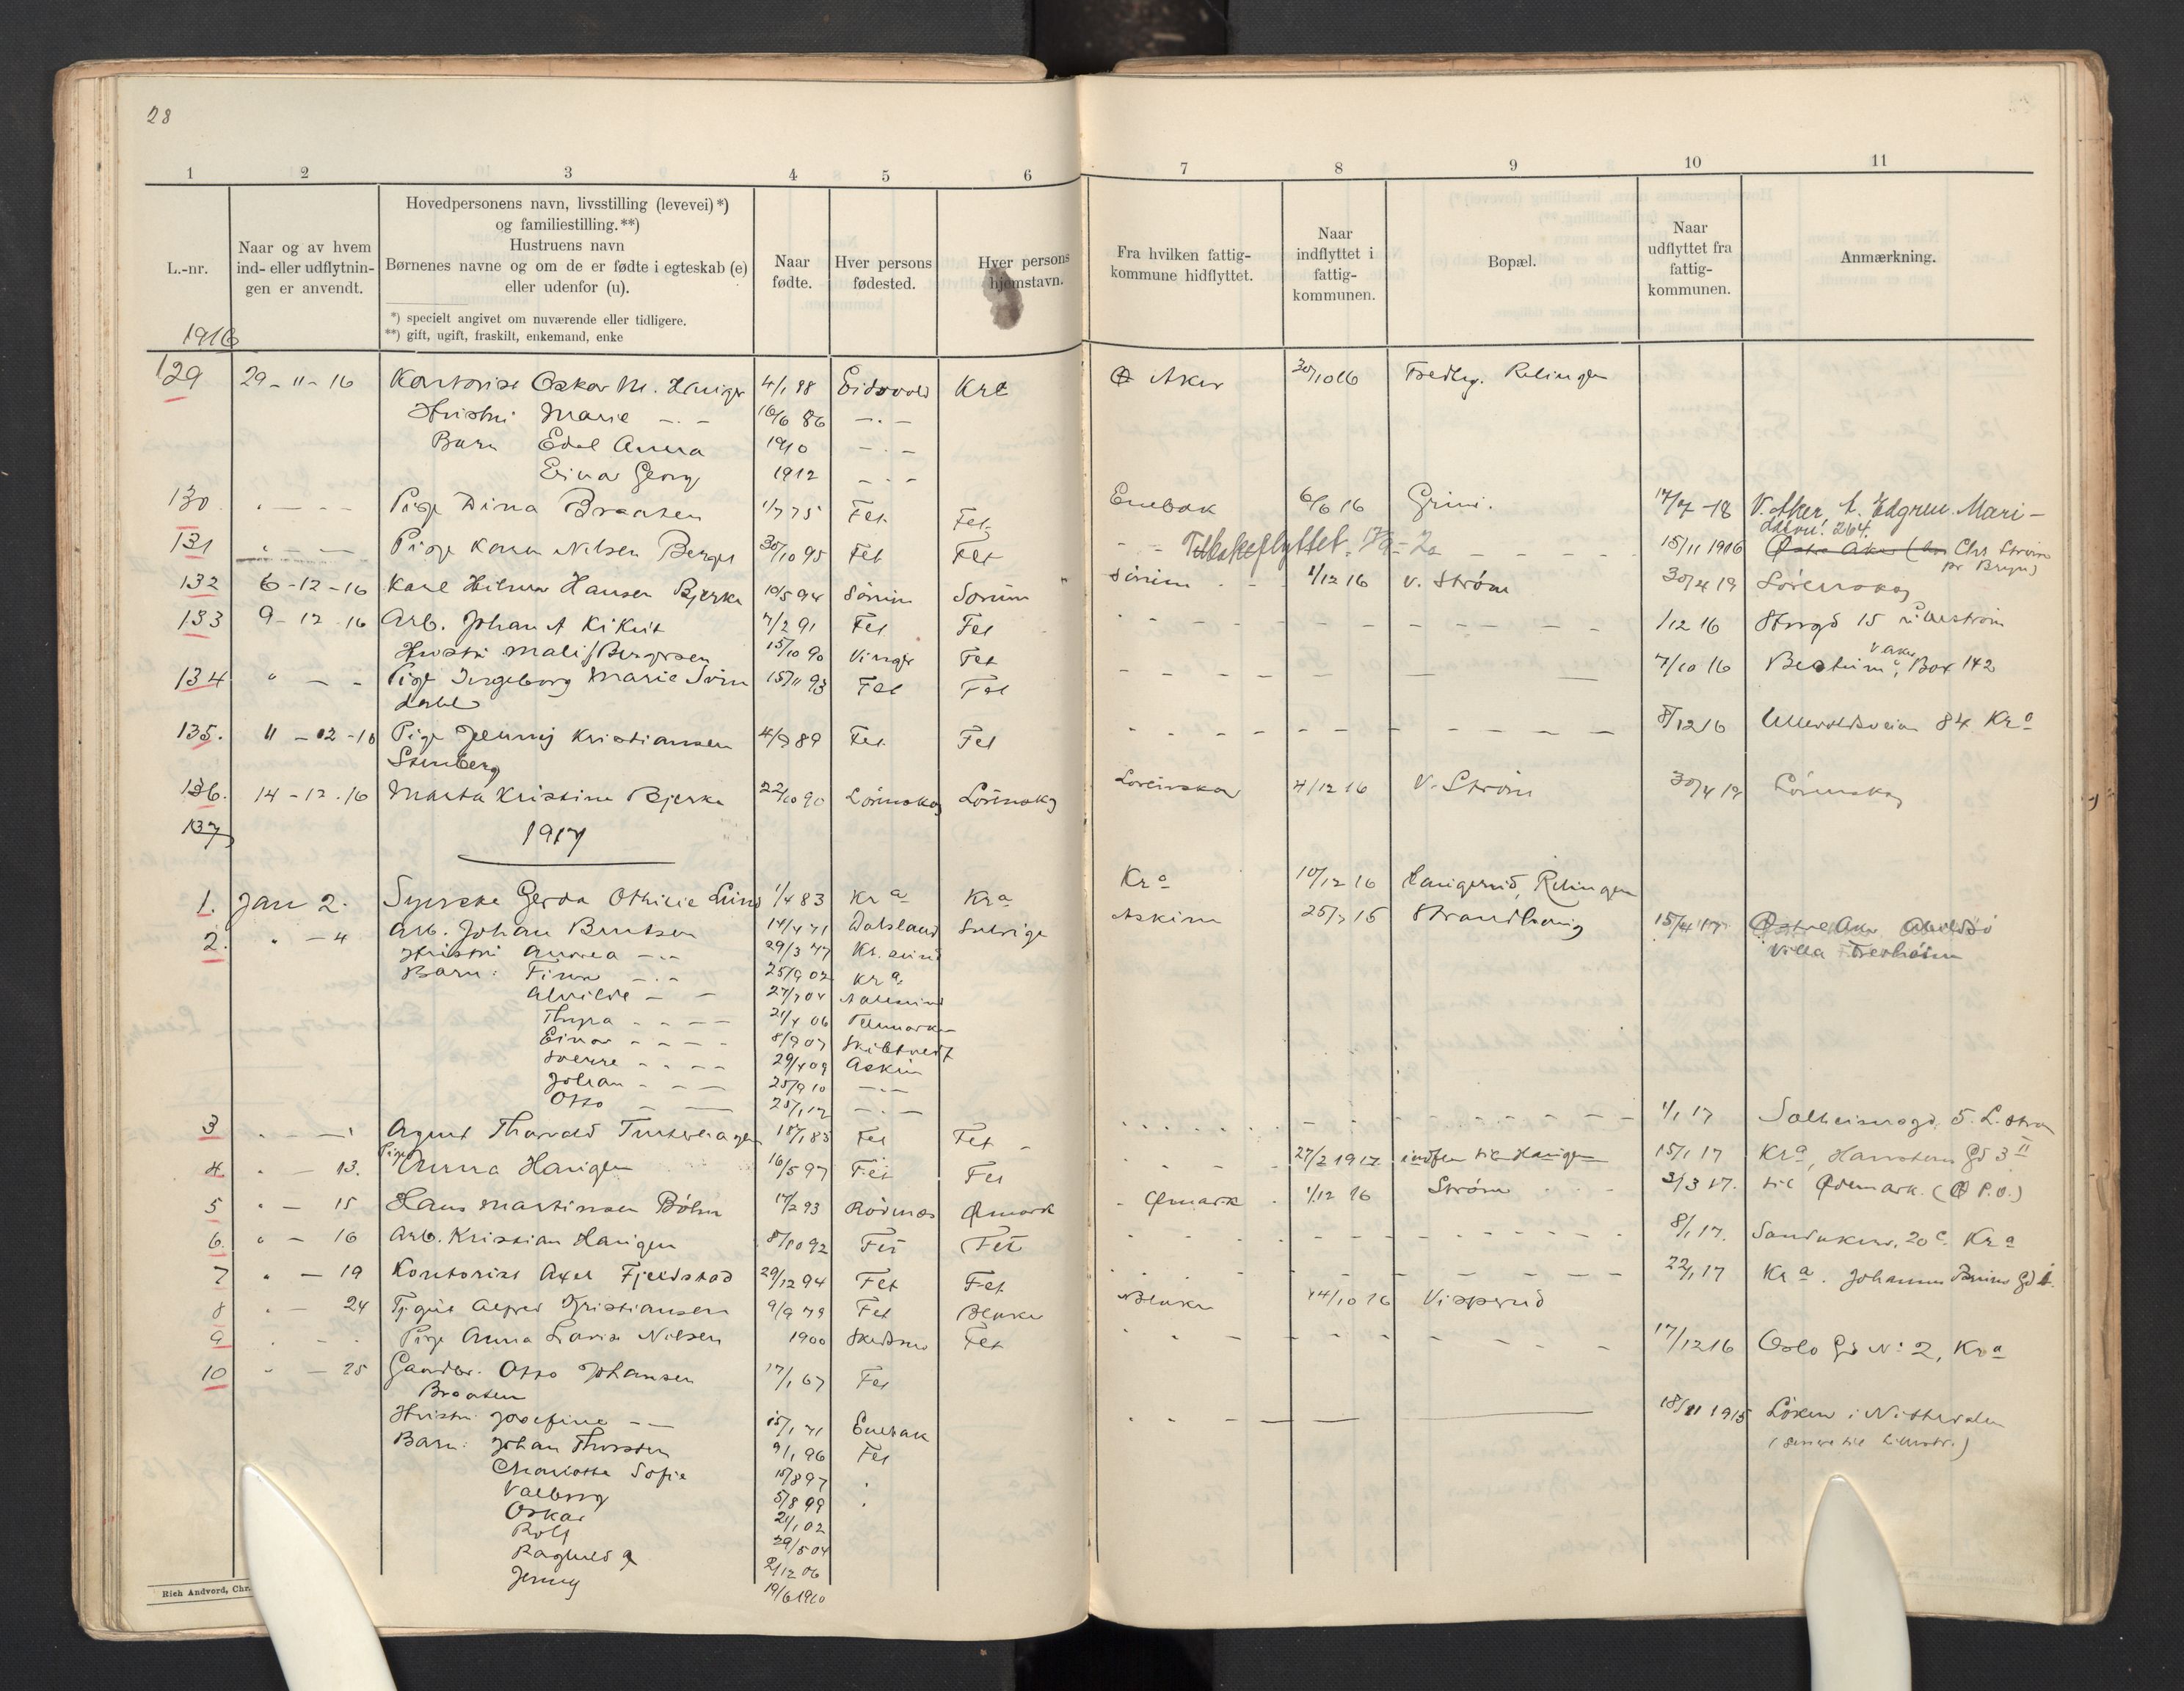 28
1 2 3 4 5 6 7 8 9 10 11
L.-nr.
Naar og av hvem
ind- eller udflytnin-
gen er anvendt.
Hovedpersonens navn, livsstilling (levevei)*)
og familiestilling.**)
Hustruens navn
Børnenes navne og om de er fødte i egteskab (e)
eller udenfor (u).
*) specielt angivet om nuværende eller tidligere.
**) gift, ugift, fraskilt, enkemand, enke
Naar
fødte.
Hver persons
fødested.
Hver persons
hjemstavn.
Fra hvilken fattig-
kommune hidflyttet.
Naar
indflyttet i
fattig-
kommunen.
Bopæl.
Naar
udflyttet fra
fattig-
kommunen.
Anmærkning.
1916
129 29-11-16 Kontorist Oskar M. 4/1 88 Eidsvold Kra Ø Aker 30/10 16 Relingen
Hustru Marie -.- 16/6 86 -.-
Barn Edel Anna 1910 -.-
Einar Georg 1912 -.-
130 Pige Dina Braaten 1/7 75 Fet Fet Enebak 6/6 16 Grini. 17/7-18 V. Aker A. Edgren. Mari-
264.
131 Pige Karen Nilsen Berger 30/10 95 Fet Fet Tilbakeflyttet 15/11 1916 Østre Aker Chr Strøm
pr Bryn)
132 6-12-16 Karl Hilmar Hansen Bjerke 10/5 94 Sørum Sørum Sørum 1/12 16 V. Strøm 30/4 19 Lørenskog
133 9-12-16 Arb. Johan A Kikut 7/2 91 Fet Fet 1/12 16 Storgd 15 Lillestrøm
Hustru Mali Bergersen 15/10 90 Vinger Fet
134 " - - Pige Ingeborg Marie Sørn 15/11 93 Fet Fet 7/10 16 Bestum, V Aker Box 142
dahl
135. 11-12-16 Pige Jenny Kristiansen 4/9 89 Fet Fet 8/12 16 Ullevoldsveien 84 Kra
Stenberg
136. 14-12-16 Marta Kristine Bjerke 22/10 90 Lørenskog Lørenskog Lørenskog 4/12 16 V. Strøm 30/4 19 Lørenskog
137
1917
1. Jan 2. Syerske Gerda Othilie Lund 1/4 83 Kra Kra Kra 10/12 16 Relingen
2. " - 4 Arb. Johan Berntsen 14/4 71 Dalsland Sverige Askim 25/7 15 15/4 17 Østre Aker Abildsø
Villa
Hustru -.- 29/3 77
Barn: Finn -.- 25/9 02 Kra
Alvilde - - 27/7 04
Thyra - - - 21/4 06 Telemarken
Einar - - - 8/9 07 Skibtvedt
Sverre - - - 29/4 09 Askim
Johan - - - 25/9 10 -.-
Otto - - 25/1 12 -.-
3 Agent Thorvald 18/1 85 Fet Fet 1/1 17 Solheimsgd. 5. L.strøm
4 " - 13. Pige Anna Haugen 16/5 97 Fet Fet 27/2 1917 15/1 17 Kra, Gd 3 II
5 " - 15 Hans Martinsen Bøhn 17/2 93 Rødenes Ømark Ømark 1/12 16 Strøm 3/3 17. til Ødemark. (Ø P.O.)
6. " - 16 Arb. Kristian Haugen 8/10 92 Fet Fet 8/1 17. 20 c. Kra
7 " - 19 Kontorist Axel Fjeldstad 29/12 94 Fet Fet 22/1 17 Kra. Johannes Bruns Gd
8 " - 24 Tjgut Alfred Kristiansen 9/9 79 Fet Blaker Blaker 14/10 16
9 Pige Anna Lovise Nilsen 1900 Skedsmo Fet 17/12 16 Oslo Gd No 2, Kra
10 " - 25 Gaardbr. Otto Johansen 17/1 67 Fet
Braaten
18/11 1915 Løken i Nittedalen
Hustru Josefine -.- 15/1 71 Enebak
Barn: Johan Thorsten 9/1 96 Fet
Charlotte Sofie 15/8 97
Valborg 5/8 99
Oskar 21/1 02
Rolf 29/5 04
Ragnhild 2/12 06
Jenny 19/6 1910
Rich Andvord, Chr.